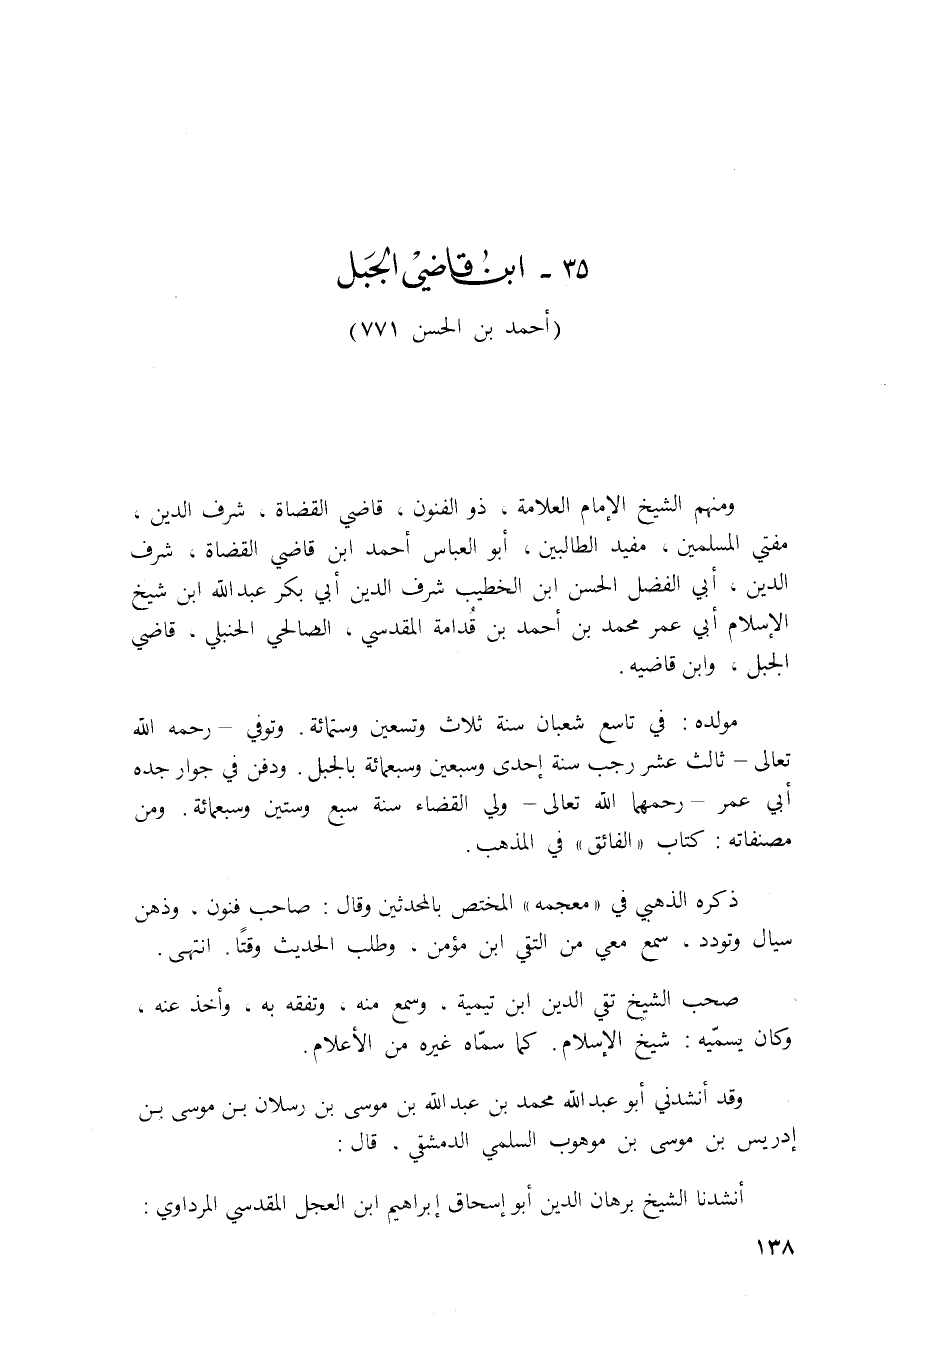 ٣٥ - ابنُ قاضيْ الجبَل
(أحمد بن الحسن ٧٧١)
ومنهم الشيخ الإمام العلامة ، ذو الفنون ، قاضي القضاة ، شرف الدين ،
مفتي المسلمين ، مفيد الطالبين ، أبو العباس أحمد ابن قاضي القضاة ، شرف
الدين ، أبي الفضل الحسن ابن الخطيب شرف الدين أبي بكر عبدالله ابن شيخ
الإسلام أبي عمر محمد بن أحمد بن قُدامة المقدسي ، الصالحي الحنبلي ، قاضي
الجبل ، وابن قاضيه .
مولده : في تاسع شعبان سنة ثلاث وتسعين وستمائة . وتوفي – رحمه الله
تعالى – ثالث عشر رجب سنة إحدى وسبعين وسبعمائة بالجبل . ودفن في جوار جده
أبي عمر – رحمهما الله تعالى – ولي القضاء سنة سبع وستين وسبعمائة . ومن
مصنفاته : كتاب «الفائق» في المذهب .
ذكره الذهبي في «معجمه» المختص بالمحدثين وقال : صاحب فنون ، وذهن
سيال وتودد ، سمع معي من التقي ابن مؤمن ، وطلب الحديث وقتًا . انتهى .
صحب الشيخ تقي الدين ابن تيمية ، وسمع منه ، وتفقه به ، وأخذ عنه ،
وكان يسمّيه : شيخ الإسلام . كما سمّاه غيره من الأعلام .
وقد أنشدني أبو عبدالله محمد بن عبدالله بن موسى بن رسلان بن موسى بن
إدريس بن موسى بن موهوب السلمي الدمشقي ، قال :
أنشدنا الشيخ برهان الدين أبو إسحاق إبراهيم ابن العجل المقدسي المرداوي :
١٣٨